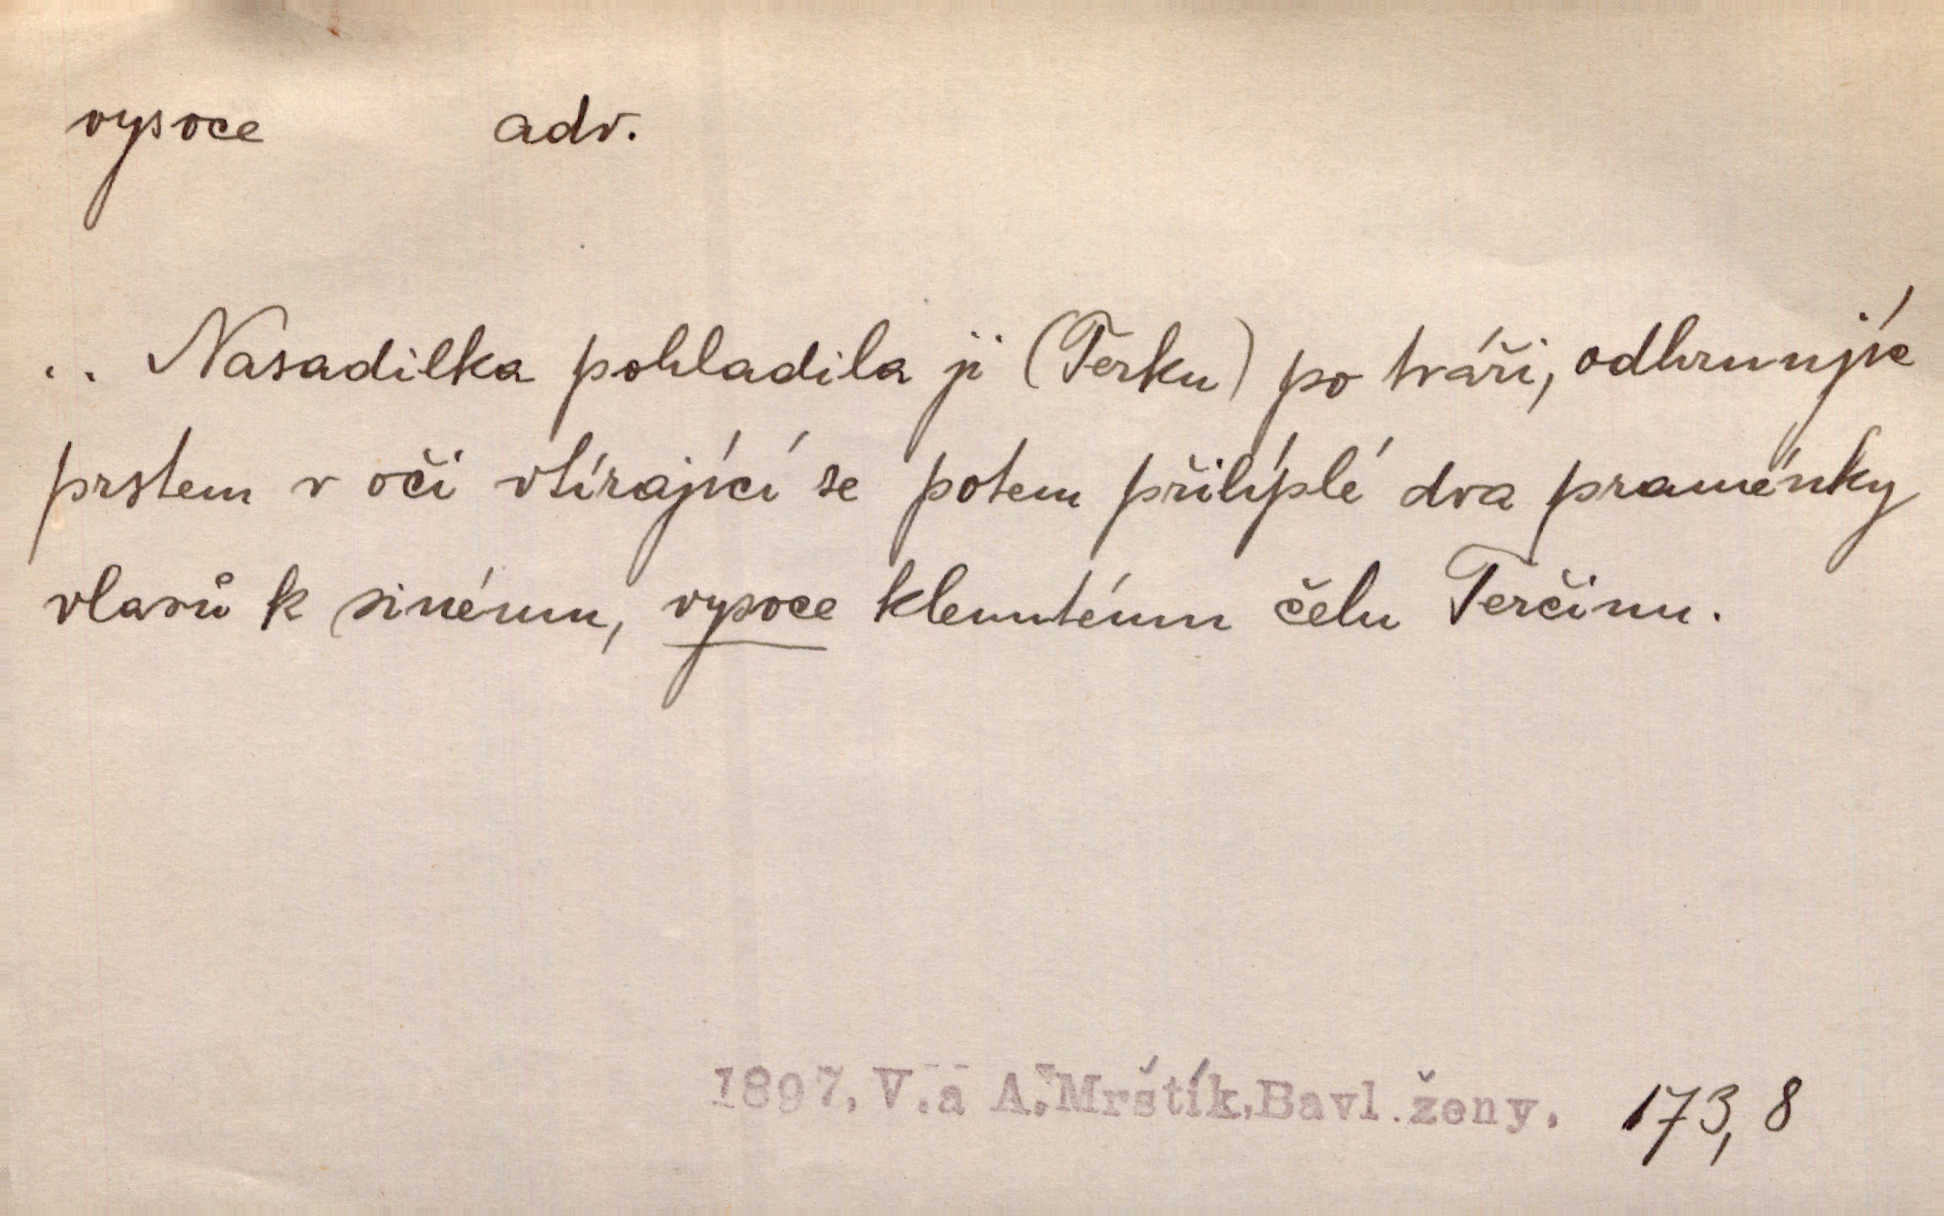 vysoce adv.
.. Nasadilka pohladila ji (Terku) po tváři, odhrnujíc
prstem v oči vtírající se potem přilíplé dva praménky
vlasů k sinému, vysoce klenutému čelu Terčinu.
1897, V. a A. Mrštík, Bavl. ženy. 173, 8